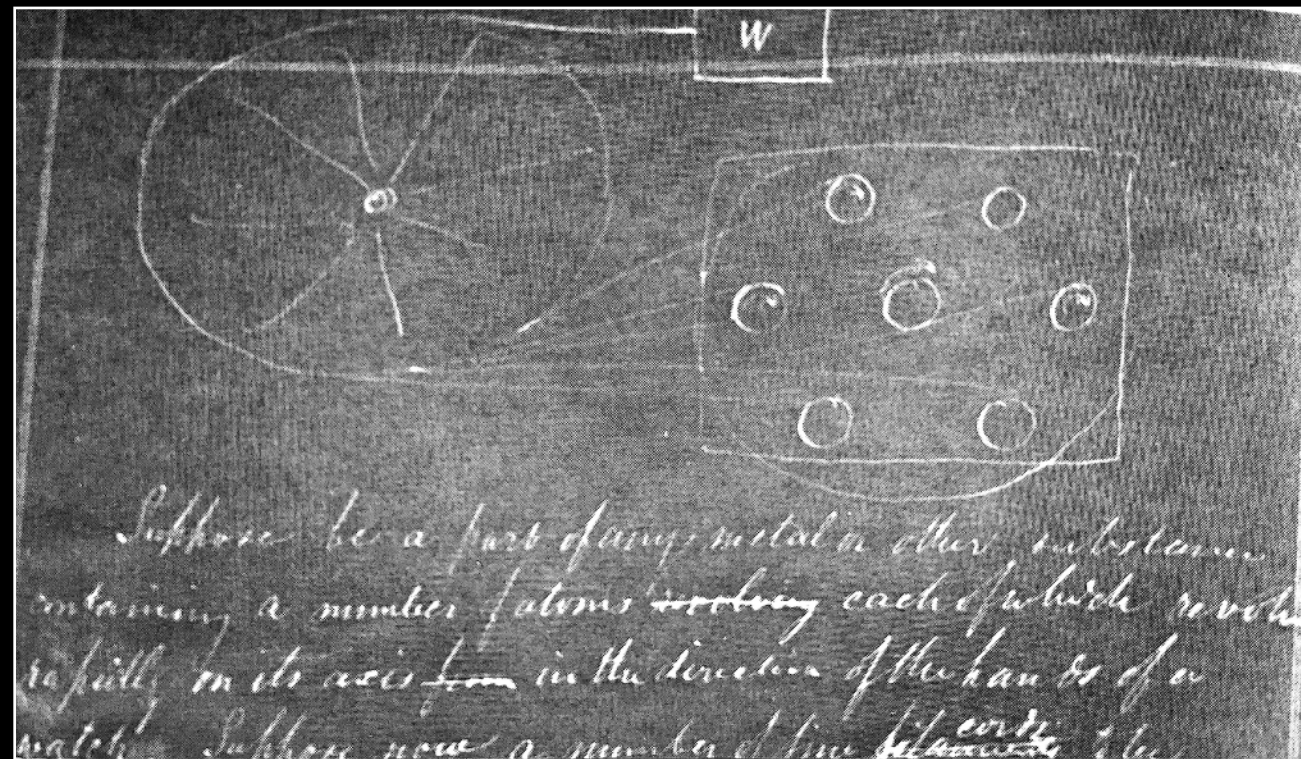 W
Suppose be a part of any metal or other substance
containing a number of atoms revolving each of which revolv
rapidly on its axis from in the direction of the hands of a
watch. Suppose now a number of fine cords